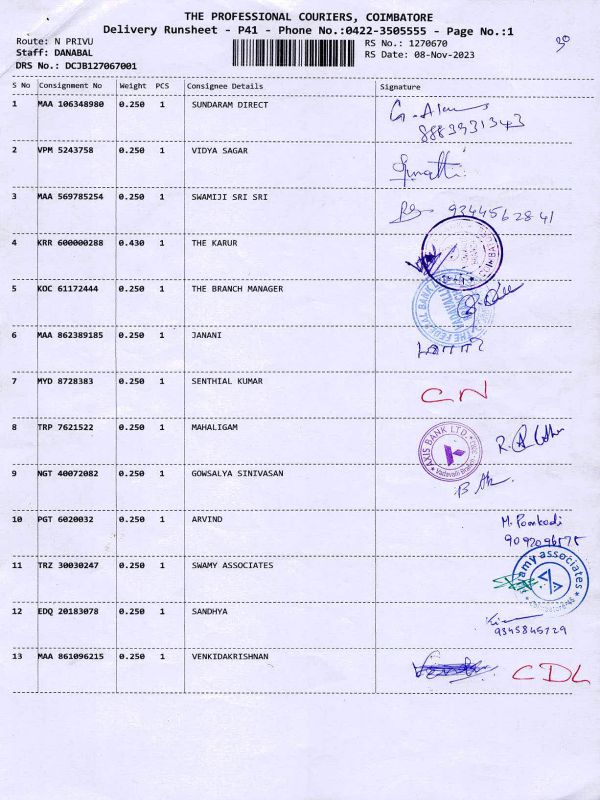 THE PROFESSIONAL COURIERS, COIMBATORE
Delivery Runsheet - P41 - Phone No.:0422-3505555 - Page No.:1
Route: N PRIVU RS No.: 1270670 30
Staff: DANABAL RS Date: 08-Nov-2023
DRS No.: DCJB127067001
S No Consignment No Weight PCS Consignee Details Signature
1 MAA 106348980 0.250 1 SUNDARAM DIRECT
8883931343
2 VPM 5243758 0.250 1 VIDYA SAGAR
3 MAA 569785254 0.250 1 SWAMIJI SRI SRI 9344562841
4 KRR 600000288 0.430 1 THE KARUR
5 KOC 61172444 0.250 1 THE BRANCH MANAGER
THE FEDERAL BANK
6 MAA 862389185 0.250 1 JANANI
7 MYD 8728383 0.250 1 SENTHIAL KUMAR CN
8 TRP 7621522 0.250 1 MAHALIGAM
AXIS BANK LTD.
Vadavalli Branch
9 NGT 40072082 0.250 1 GOWSALYA SINIVASAN
10 PGT 6020032 0.250 1 ARVIND M. Poonkodi
9092096575
11 TRZ 30030247 0.250 1 SWAMY ASSOCIATES
amy associates
12 EDQ 20183078 0.250 1 SANDHYA
9345845729
13 MAA 861096215 0.250 1 VENKIDAKRISHNAN CDL